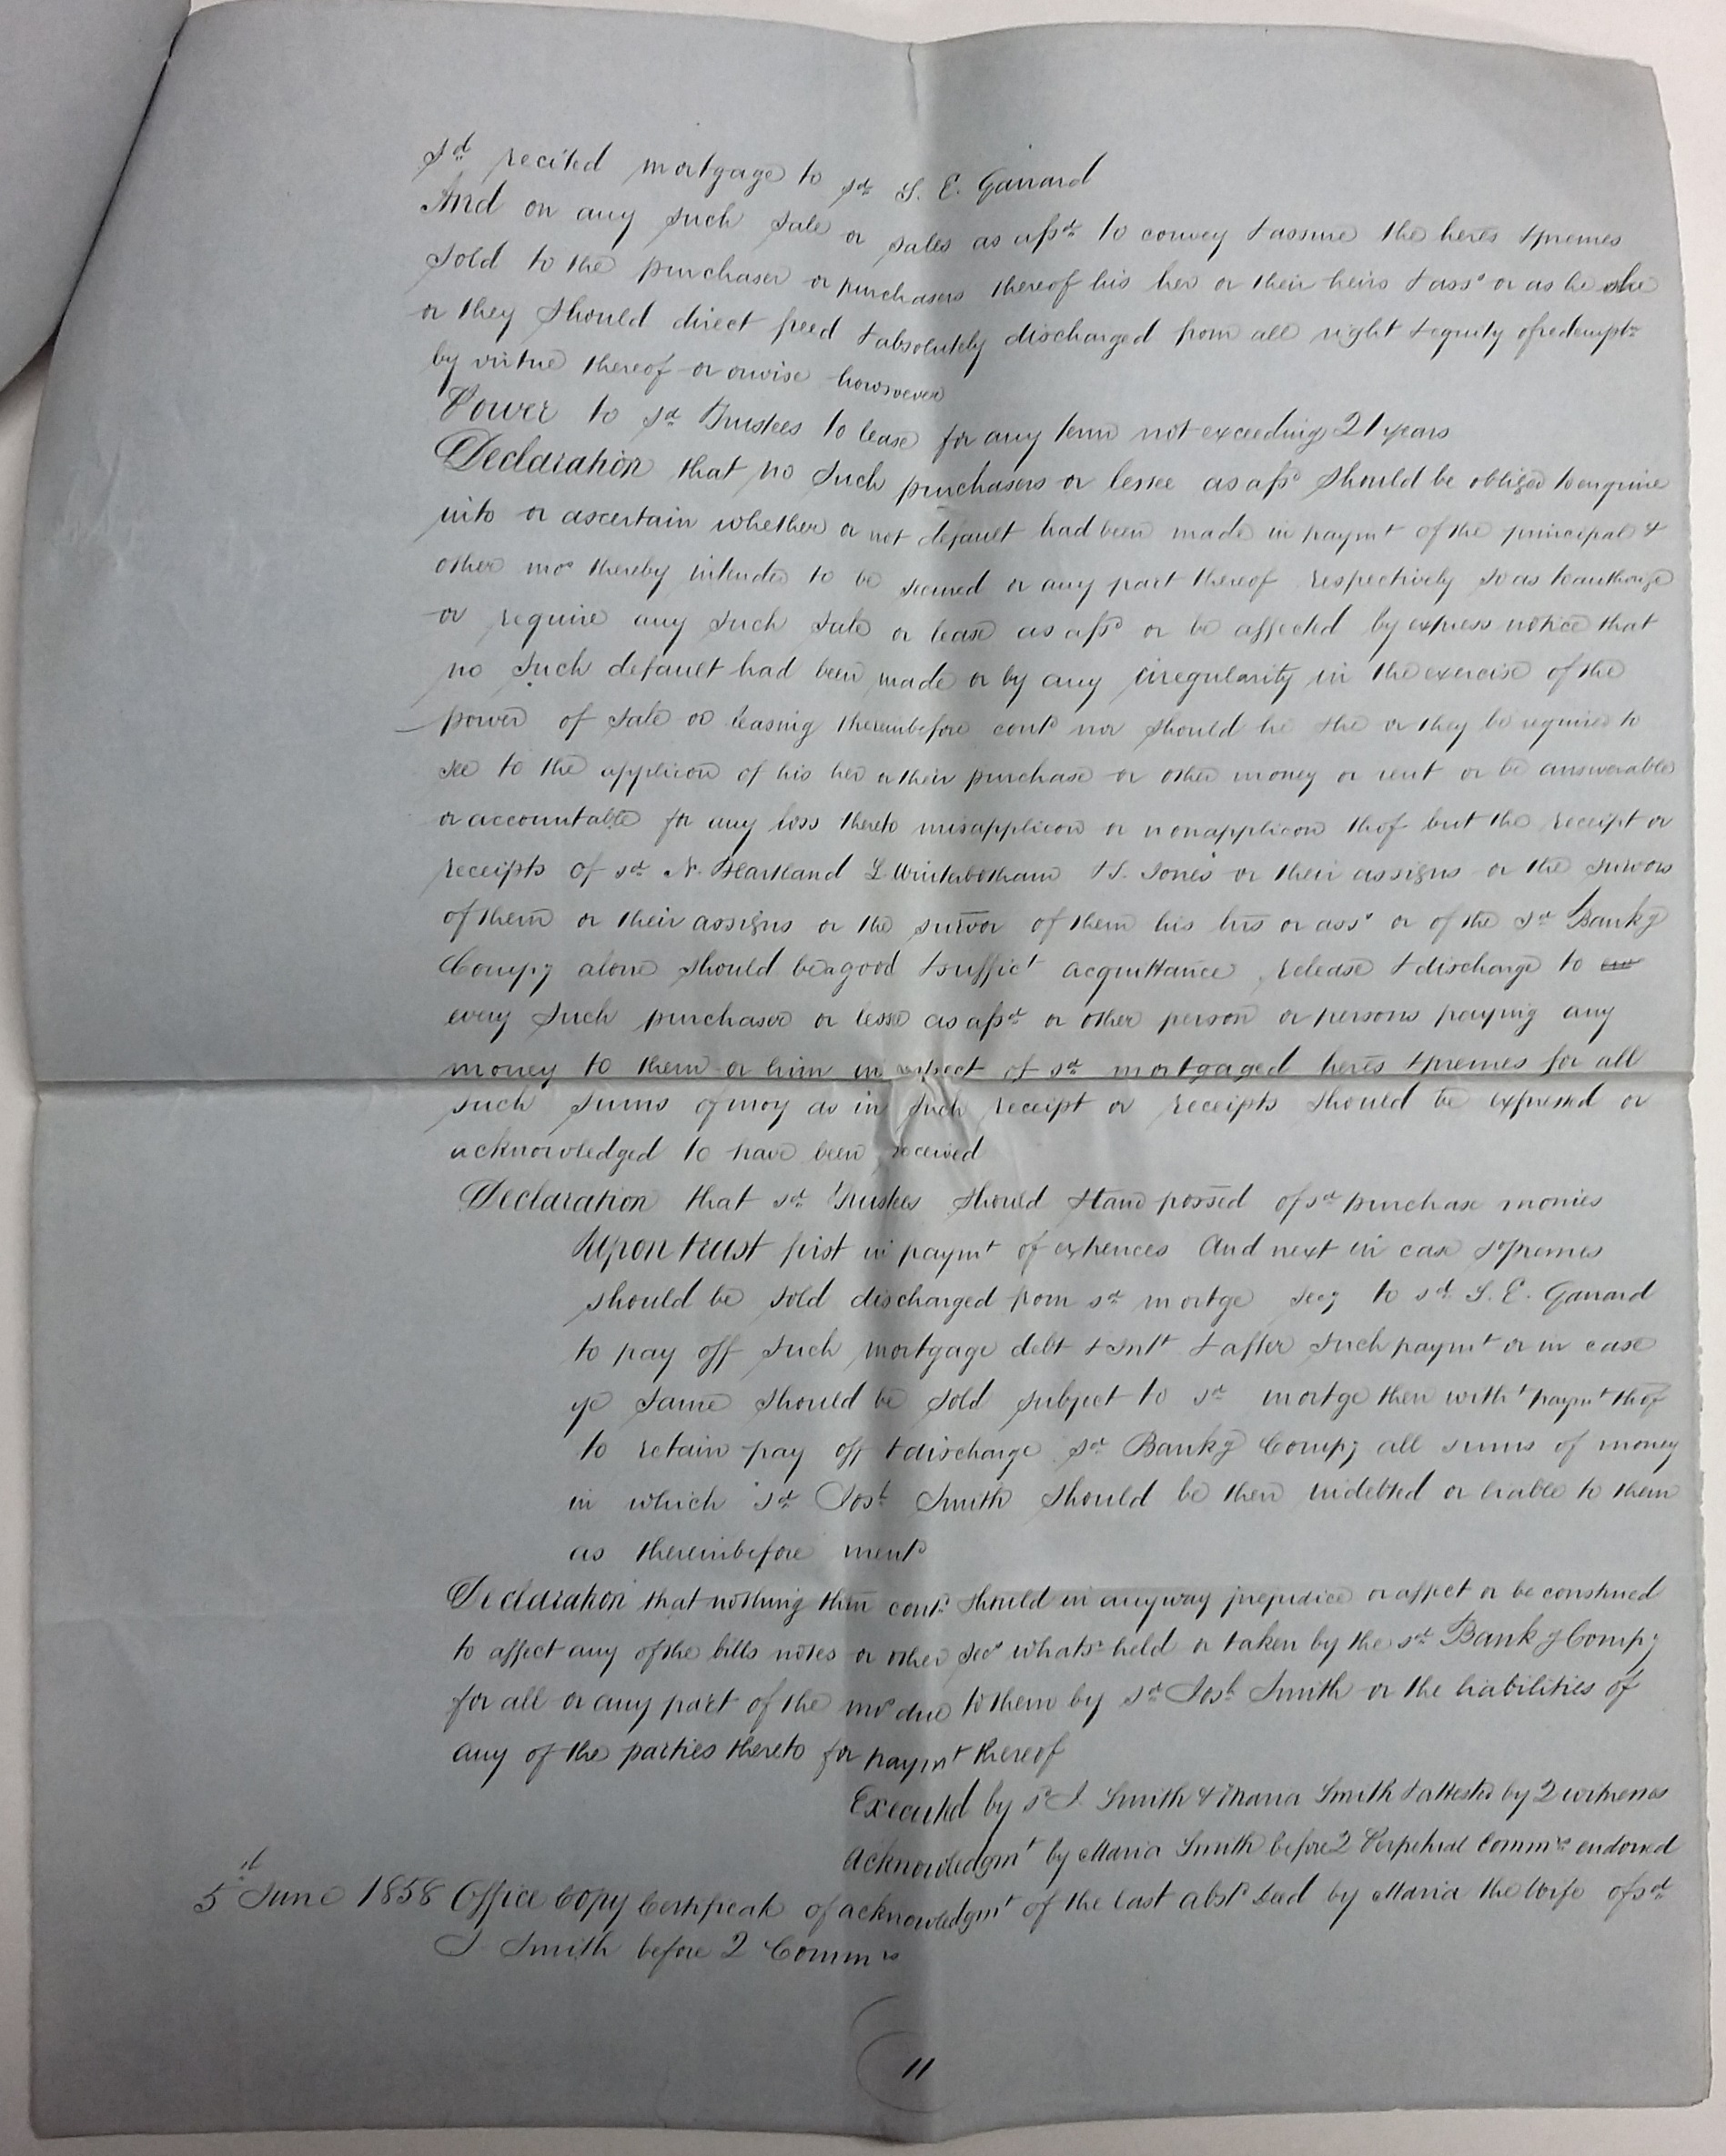 sd recited mortgage to sd S. E. Garrard
And on any such sale or sales as afsd to convey & assure the heres & premes
sold to the purchaser or purchasers thereof his her or their heirs & asss or as he she
or they should direct freed & absolutely discharged from all right & equity of redemptn
by virtue thereof or orwise howsoever
Power to sd Trustees to lease for any term not exceeding 21 years
Declaration that no such purchasers or lessee as afsd should be obliged to enquire
into or ascertain whether or not default had been made in paymt of the principal &
other mos thereby intended to be secured or any part thereof respectively so as to authorize
or require any such sale or lease as afsd or be affected by express notice that
no such default had been made or by any irregularity in the exercise of the
power of sale or leasing thereinbefore contd nor should he she or they be required to
see to the applicon of his her or their purchase or other money or rent or be answerable
or accountable for any loss thereto misapplicon or nonapplicon thof but the receipt or
receipts of sd N. Hartland L Winterbotham & S. Jones or their assigns or the survors
of them or their assigns or the survor of them his hrs or asss or of the sd Bankg
Compy alone should be a good & suffict acquittance release & discharge to
every such purchaser or lessee as afsd or other person or persons paying any
money to them or him in respect of sd mortgaged heres & premes for all
such sums of moy as in such receipt or receipts should be expressed or
acknowledged to have been received
Declaration that sd Trustees should stand possed of sd purchase monies
Upon trust first in paymt of expences And next in case sd premes
should be sold discharged from sd mortge secy to sd S. E. Garrard
to pay off such mortgage debt & Intt & after such paymt or in case
ye same should be sold subject to sd mortge then witht paymt thof
to retain pay off & discharge sd Bankg Compy all sums of money
in which sd Josh Smith should be then indebted or liable to them
as thereinbefore mentd
Declaration that nothing thin contd should in anyway prejudice or affect or be construed
to affect any of the bills notes or other secs whatsr held or taken by the sd Bankg Compy
for all or any part of the mos due to them by sd Josh Smith or the liabilities of
any of the parties thereto for paymt thereof
Executed by sd J. Smith & Maria Smith & attested by 2 witnesses
Acknowledgmt by Maria Smith before 2 Perpetual Commrs endorsed
5th June 1858 Office Copy Certificate of acknowledgmt of the last abstd deed by Maria the Wife of sd
J. Smith before 2 Commrs
11